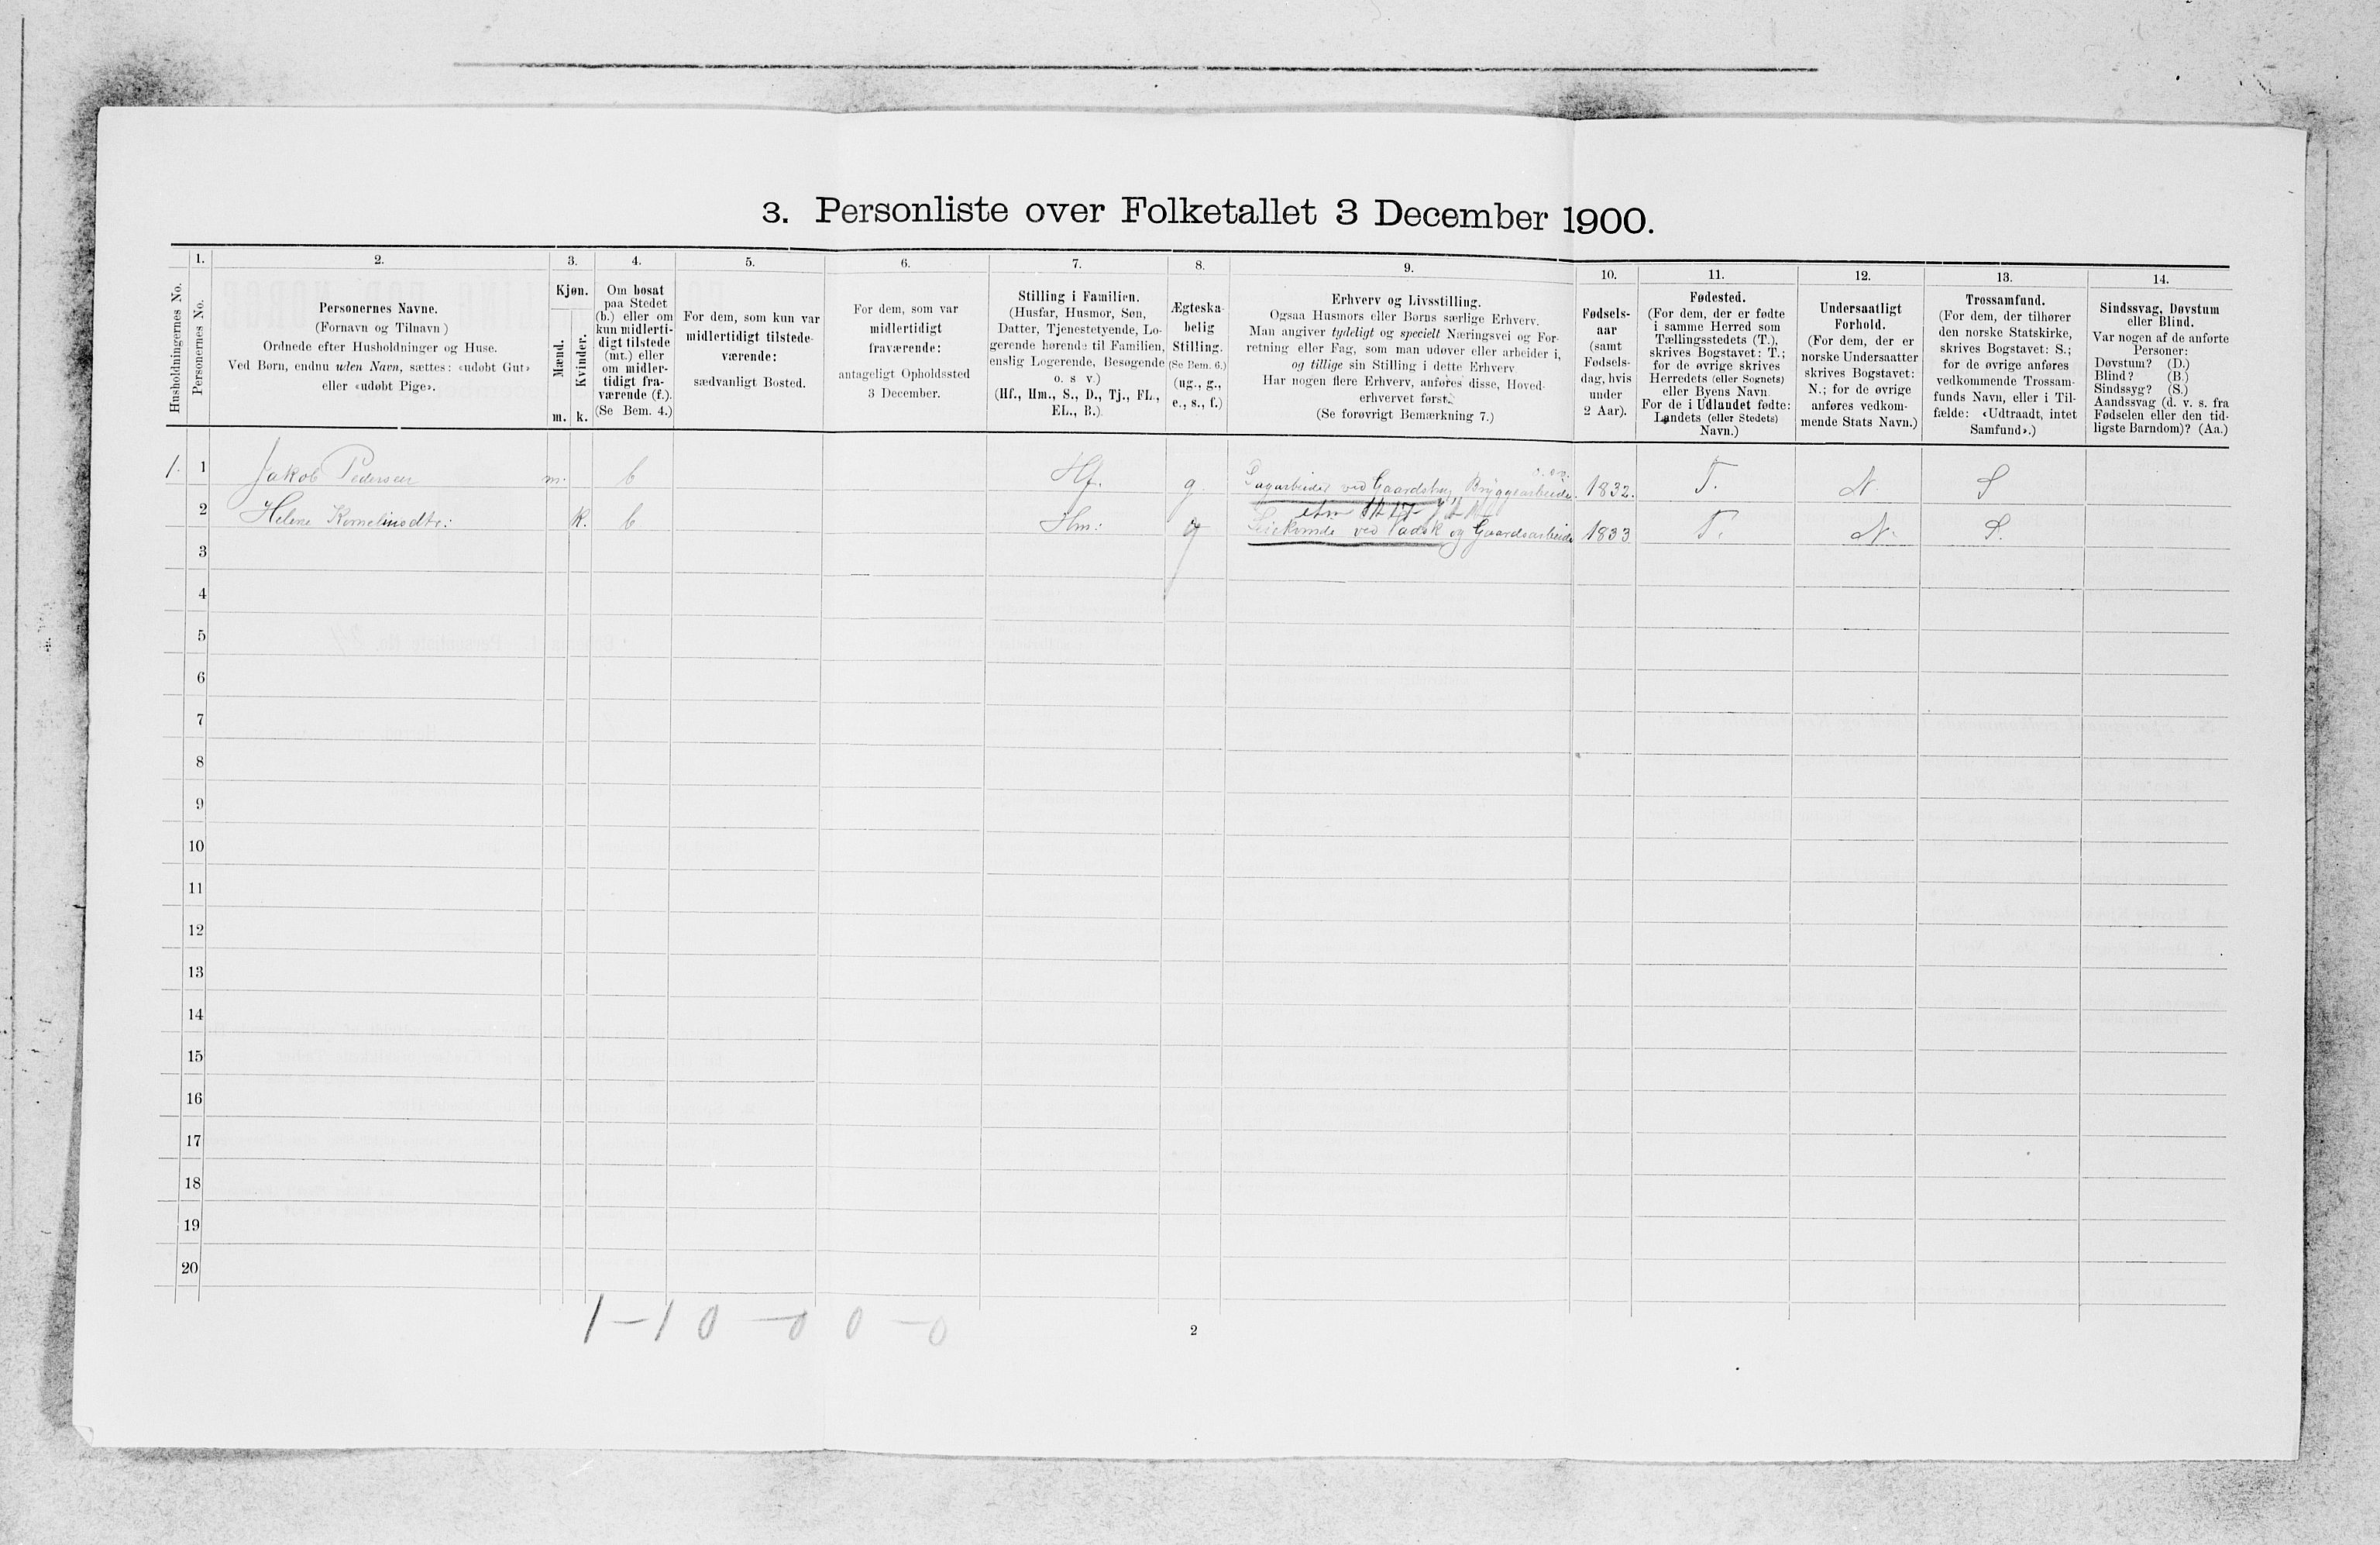 3. Personliste over Folketallet 3 December 1900.
Husholdningernes No.
1.
Personernes No.
2.
Personernes Navne.
(Fornavn og Tilnavn)
Ordnede efter Husholdninger og Huse.
Ved Børn, endnu uden Navn, sættes: «udøbt Gut»
eller «udøbt Pige».
3.
Kjøn.
Mænd.
Kvinder.
m.
k.
4.
Om bosat
paa Stedet
(b.) eller om
kun midlerti-
digt tilstede
(mt.) eller
om midler-
tidigt fra-
værende (f.).
(Se Bem. 4.)
5.
For dem, som kun var
midlertidigt tilstede-
værende:
sædvanligt Bosted.
6.
For dem, som var
midlertidigt
fraværende:
antageligt Opholdssted
3 December.
7.
Stilling i Familien.
(Husfar, Husmor, Søn,
Datter, Tjenestetyende, Lo-
gerende hørende til Familien,
enslig Logerende, Besøgende
o. s v.)
(Hf., Hm., S., D., Tj., FL.,
EL., B.)
8.
Ægteska-
belig
Stilling.
(Se Bem. 6.)
(ug., g.,
e., s., f.)
9.
Erhverv og Livsstilling.
Ogsaa Husmors eller Børns særlige Erhverv.
Man angiver tydeligt og specielt Næringsvei og For-
retning eller Fag, som man udøver eller arbeider i,
og tillige sin Stilling i dette Erhverv
Har nogen flere Erhverv, anføres disse, Hoved-
erhvervet først.
(Se forøvrigt Bemærkning 7.)
10.
Fødsels-
aar
(samt
Fødsels-
dag, hvis
under
2 Aar).
11.
Fødested.
(For dem, der er fødte
i samme Herred som
Tællingsstedets (T.),
skrives Bogstavet: T.;
for de øvrige skrives
Herredets (eller Sognets)
eller Byens Navn.
For de i Udlandet fødte:
Landets (eller Stedets)
Navn.)
12.
Undersaatligt
Forhold.
(For dem, der er
norske Undersaatter
skrives Bogstavet:
N.; for de øvrige
anføres vedkom-
mende Stats Navn.)
13.
Trossamfund.
(For dem, der tilhører
den norske Statskirke,
skrives Bogstavet: S.;
for de øvrige anføres
vedkommende Trossam-
funds Navn, eller i Til-
fælde: «Udtraadt, intet
Samfund».)
14.
Sindssvag, Døvstum
eller Blind.
Var nogen af de anførte
Personer:
Døvstum? (D.)
Blind? (B.)
Sindssyg? (S.)
Aandssvag (d. v. s. fra
Fødselen eller den tid-
ligste Barndom)? (Aa.)
1. 1 Jakob Pedersen m. b Hf. g. Dagarbeider ved Gaardsbrug Bryggearbeide. 1832. T. N. S
2 Helene Kornelinsdtr: k. b Hm: g ved og Gaardsarbeide 1833 T. N. S.
3
4
5
6
7
8
9
10
11
12
13
14
15
16
17
18
19
20
1 - 1 0 - 0 0 - 0
2